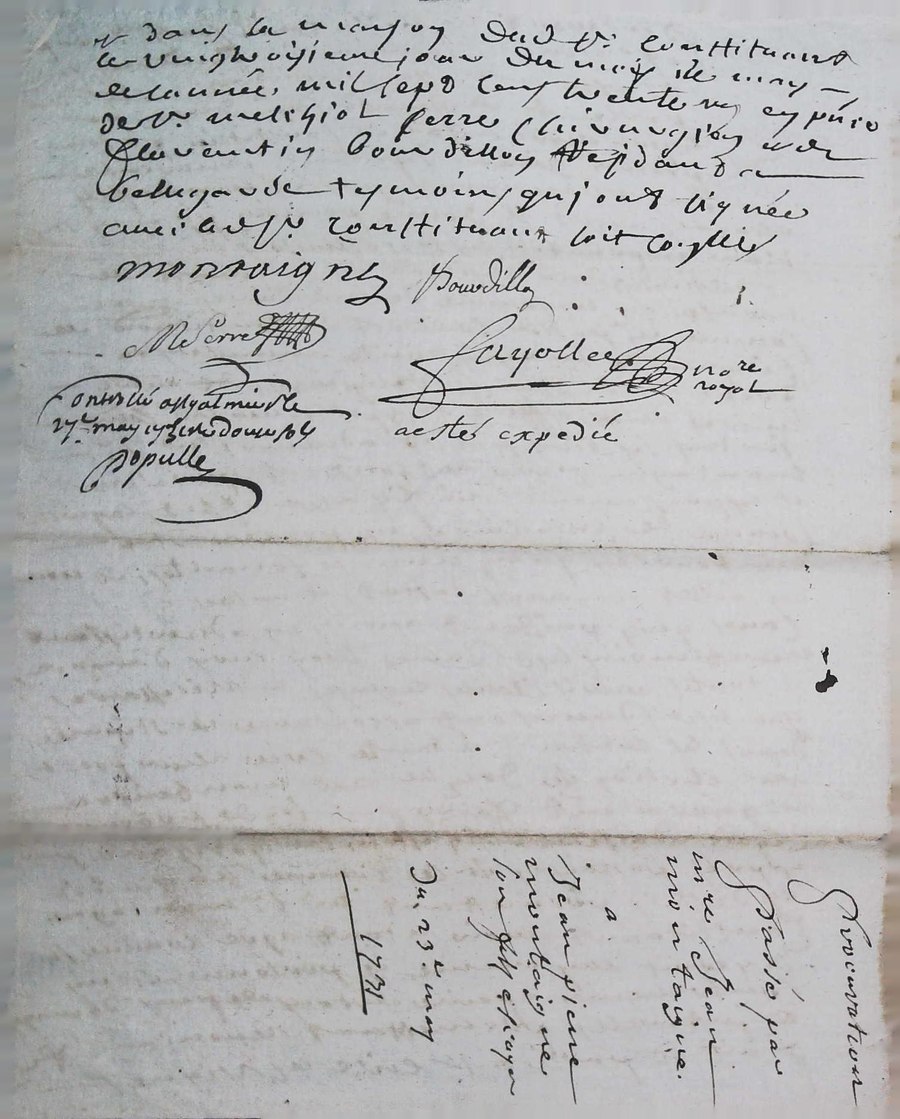 et dans la maison dud Sr. constituant
le vingtroisieme jour du mois de may
de lannée mil sept cens trente un en pnce
de Sr. melchiol serre chirurgien et de
florentin bourdillon residant a
bellegarde tesmoins qui ont signée
avec led Sr. constituant soit
montaigne
Bourdillon
M Serre
fayolle nore
royal
Controllé a
27e may 1731 douze sols
Populle
a esté expedié
Procuration
Passé par
mre Jean
montagne.
a
Jean piere
montaigne
son fils
Du 23e may
1731